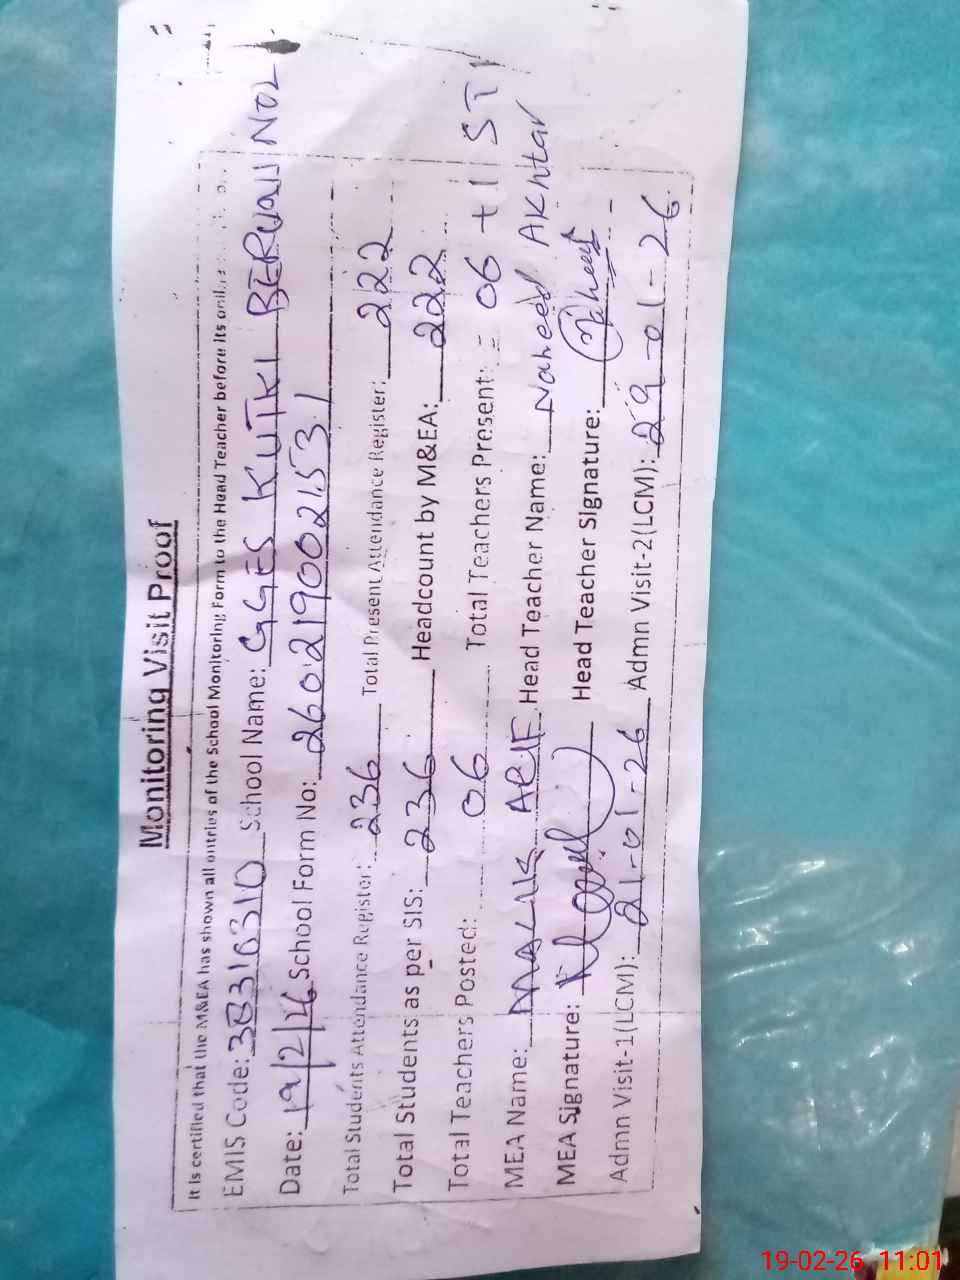 Monitoring Visit Proof
It is certified that the M&EA has shown all entries of the School Monitoring Form to the Head Teacher before its
EMIS Code: 38310310 School Name: GGES KUTKI BERUN NO2
Date: 19/2/26 School Form No: 260219002153
Total Students Attendance Register: 236 Total Present Attendance Register: 222
Total Students as per SIS: 236 Headcount by M&EA: 222
Total Teachers Posted: 06 Total Teachers Present: = 06 + 1 ST
MEA Name: MALIK ARIF Head Teacher Name: Naheed AKhtar
MEA Signature: Head Teacher Signature: Naheed
Admn Visit-1(LCMI): 21-01-26 Admn Visit-2(LCM): 29-01-26
19-02-26 11:01